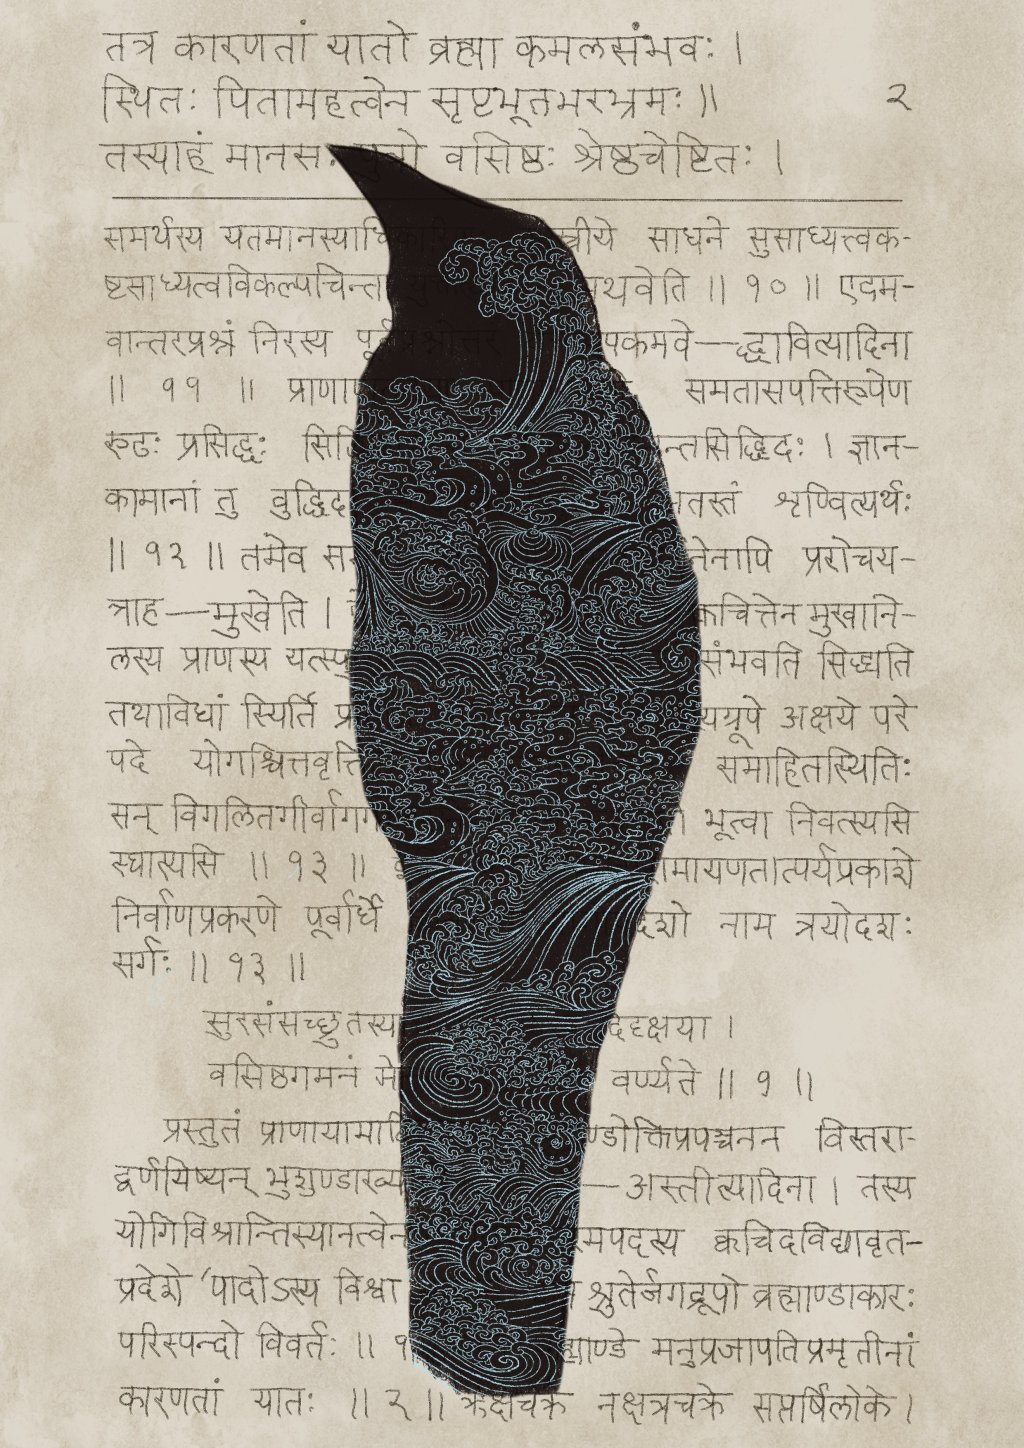 तत्र कारणतां यातो ब्रह्मा कमलसंभवः ।
स्थितः पितामहत्वेन सृष्टभूतभरभ्रमः ॥ २
तस्याहं मानसः पुत्रो वसिष्ठः श्रेष्ठचेष्टितः ।
समर्थस्य यतमानस्याधिकारि स्त्रीये साधने सुसाध्यत्त्वक-
ष्टसाध्यत्वविकल्पचिन्ता मथवेति ॥ १० ॥ एदम-
वान्तरप्रश्नं निरस्य पूर्वप्रश्नोत्तर पकमवे—द्धावित्यादिना
॥ ११ ॥ प्राणाप समतासपत्तिरूपेण
रूढः प्रसिद्धः सिद्धि न्तसिद्धिदः । ज्ञान-
कामानां तु बुद्धिद तस्तं शृण्वित्यर्थः
॥ १२ ॥ तमेव स नेनापि प्ररोचय-
न्नाह—मुखेति । कचित्तेन मुखानि-
लस्य प्राणस्य यत्स्प संभवति सिद्ध्यति
तथाविधां स्थितिं प्र य्यरूपे अक्षये परे
पदे योगश्चित्तवृत्ति समाहितस्थितिः
सन् विगलितगीर्वाग भूत्वा निवत्स्यसि
स्थास्यसि ॥ १३ ॥ रामायणतात्पर्यप्रकाशे
निर्वाणप्रकरणे पूर्वार्धे देशो नाम त्रयोदशः
सर्गः ॥ १३ ॥
सुरसंसच्छ्रुतस्या दिदृक्षया ।
वसिष्ठगमनं मे वर्ण्यते ॥ १ ॥
प्रस्तुतं प्राणायामादि ण्डोक्तिप्रपञ्चनेन विस्तरा-
द्वर्णयिष्यन् भुशुण्डाख्या —अस्तीत्यादिना । तस्य
योगिविश्रान्तिस्थानत्वेन रमपदस्य क्वचिदविद्यावृत-
प्रदेशे ‘पादोऽस्य विश्वा श्रुतेर्जगद्रूपो ब्रह्माण्डाकारः
परिस्पन्दो विवर्तः ॥ १ ह्माण्डे मनुप्रजापतिप्रभृतीनां
कारणतां यातः ॥ २ ॥ ऋक्षचक्रे नक्षत्रचक्रे सप्तर्षिलोके ।